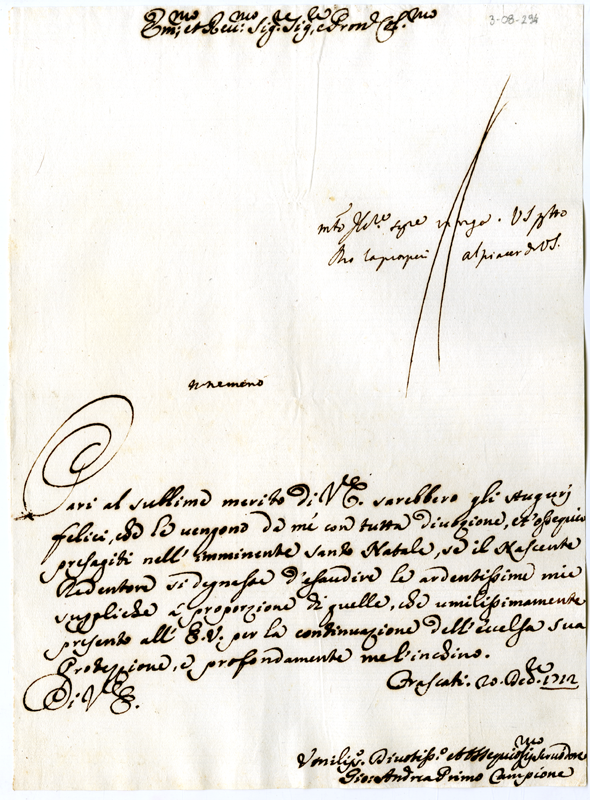 Em.mo et Rev.mo Sig.re Sig.re e Pron Col.mo
3-08-294
al piacer di VS.
Pari al sublime merito di V.E. sarebbero gli Augurj
felici, che le vengono da me con tutta divozione, et ossequio
presagiti nell'imminente santo Natale, se il Nascente
Redentore si degnasse d'esaudire le ardentissime mie
suppliche à proporzione di quelle, che umilissimamente
presento all'E.V. per la continuazione dell'eccelsa sua
Protezzione, e profondamente me l'inchino.
Di V.E.
Frascati. 20. Dec.re 1712
Umiliss.o Divotiss.o et Ossequios.mo Servidore
Gio: Andrea Primo Campione